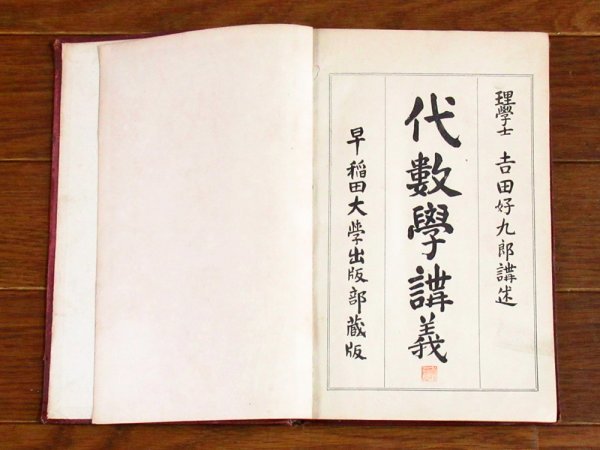 理學士 吉田好九郎講述
代數學講義
早稲田大学出版部蔵版